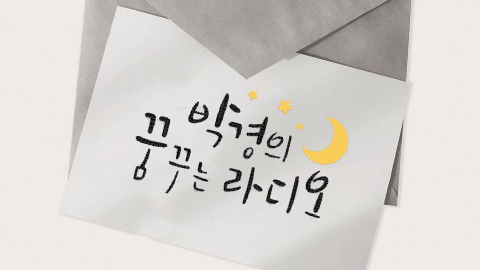 박경의
꿈꾸는 라디오